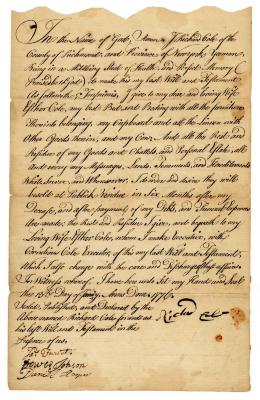 In the Name of God, Amen, I Richard Cole of the
County of Richmond, and Province of New york, Yeoman,
Being in a Middling State of Health and Perfect Memory (
Thanks be to God) do make this my last Will and Testament
As followeth; Imprimis, I give to my dear and loving Wife
Esther Cole, my best Bed and Beding with all the furniture
Thereto belonging, my Cupboard and all the Linnen with
Other Goods therein, and my Cow. And all the Rest and
Residue of my Goods and Chattels and Personal Estate, all
and every my Messuages, Lands, Tenements, and Hereditaments
Whatsoever, and Wheresoever, I order and desire they will
be sold at Publick Vendue in Six Months after my
Decease, and after payments of my Debts, and Funeral Expences
the rest and Residue I give, and bequeath to my
Loving Wife Esther Cole, whom I make Executrix, with
Cornelius Cole Executor, of this my last Will and Testament,
Which I also charge with the care and Discharge of
In Witness whereof, I have here unto Set my Hand and Seal
this 13th Day of Anno Domi 1776.
Signed, Published, and Declared by the
Above named Richard Cole
his last Will and Testament in the
Presence of us,
Richard Cole